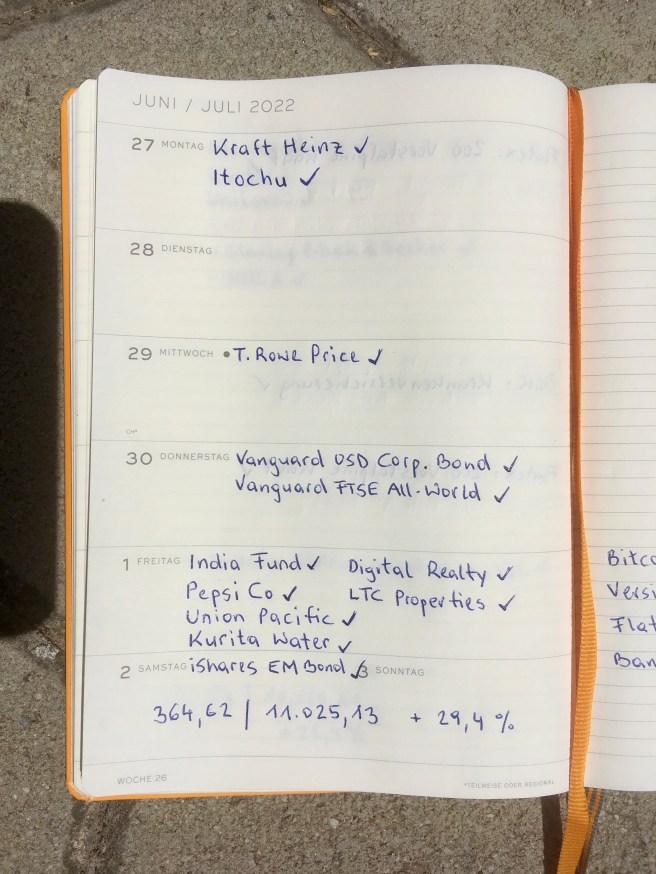 JUNI / JULI 2022
27 MONTAG Kraft Heinz ✓
Itochu ✓
28 DIENSTAG
29 MITTWOCH • T. Rowe Price ✓
CH*
30 DONNERSTAG Vanguard USD Corp. Bond ✓
Vanguard FTSE All-World ✓
1 FREITAG India Fund ✓ Digital Realty ✓
Pepsi Co ✓ LTC Properties ✓
Union Pacific ✓
Kurita Water ✓
2 SAMSTAG iShares EM Bond ✓ 3 SONNTAG
364,62 | 11.025,13 + 29,4 %
WOCHE 26
*TEILWEISE ODER REGIONAL
Bitco
Versi
Flat
Ban